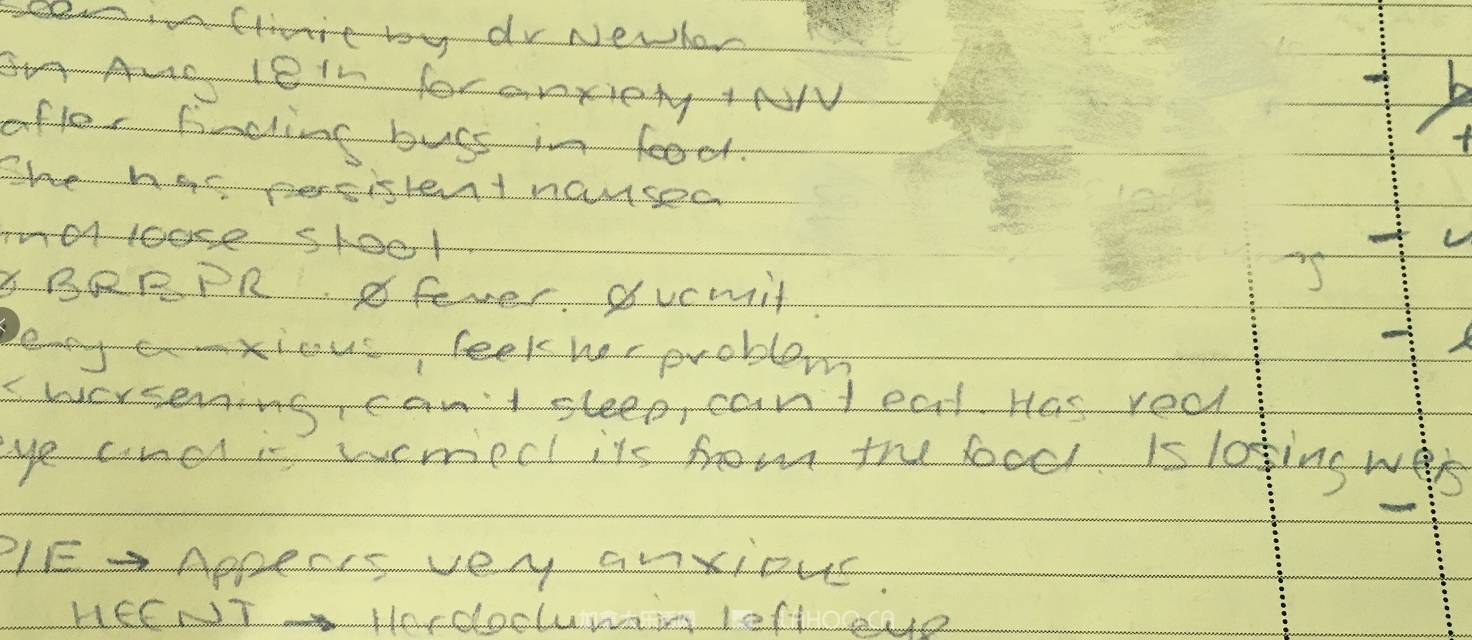 seen in clinic by dr Newton
on Aug 18th for anxiety + N/V
after finding bugs in food.
She has persistent nausea
and loose stool.
Ø BRBPR. Ø fever. Ø vomit.
very anxious, feels her problem
is worsening, can't sleep, can't eat. Has red
eye and is worried its from the food. Is losing weig
P/E → Appears very anxious
HEENT → Hordeolum in left eye